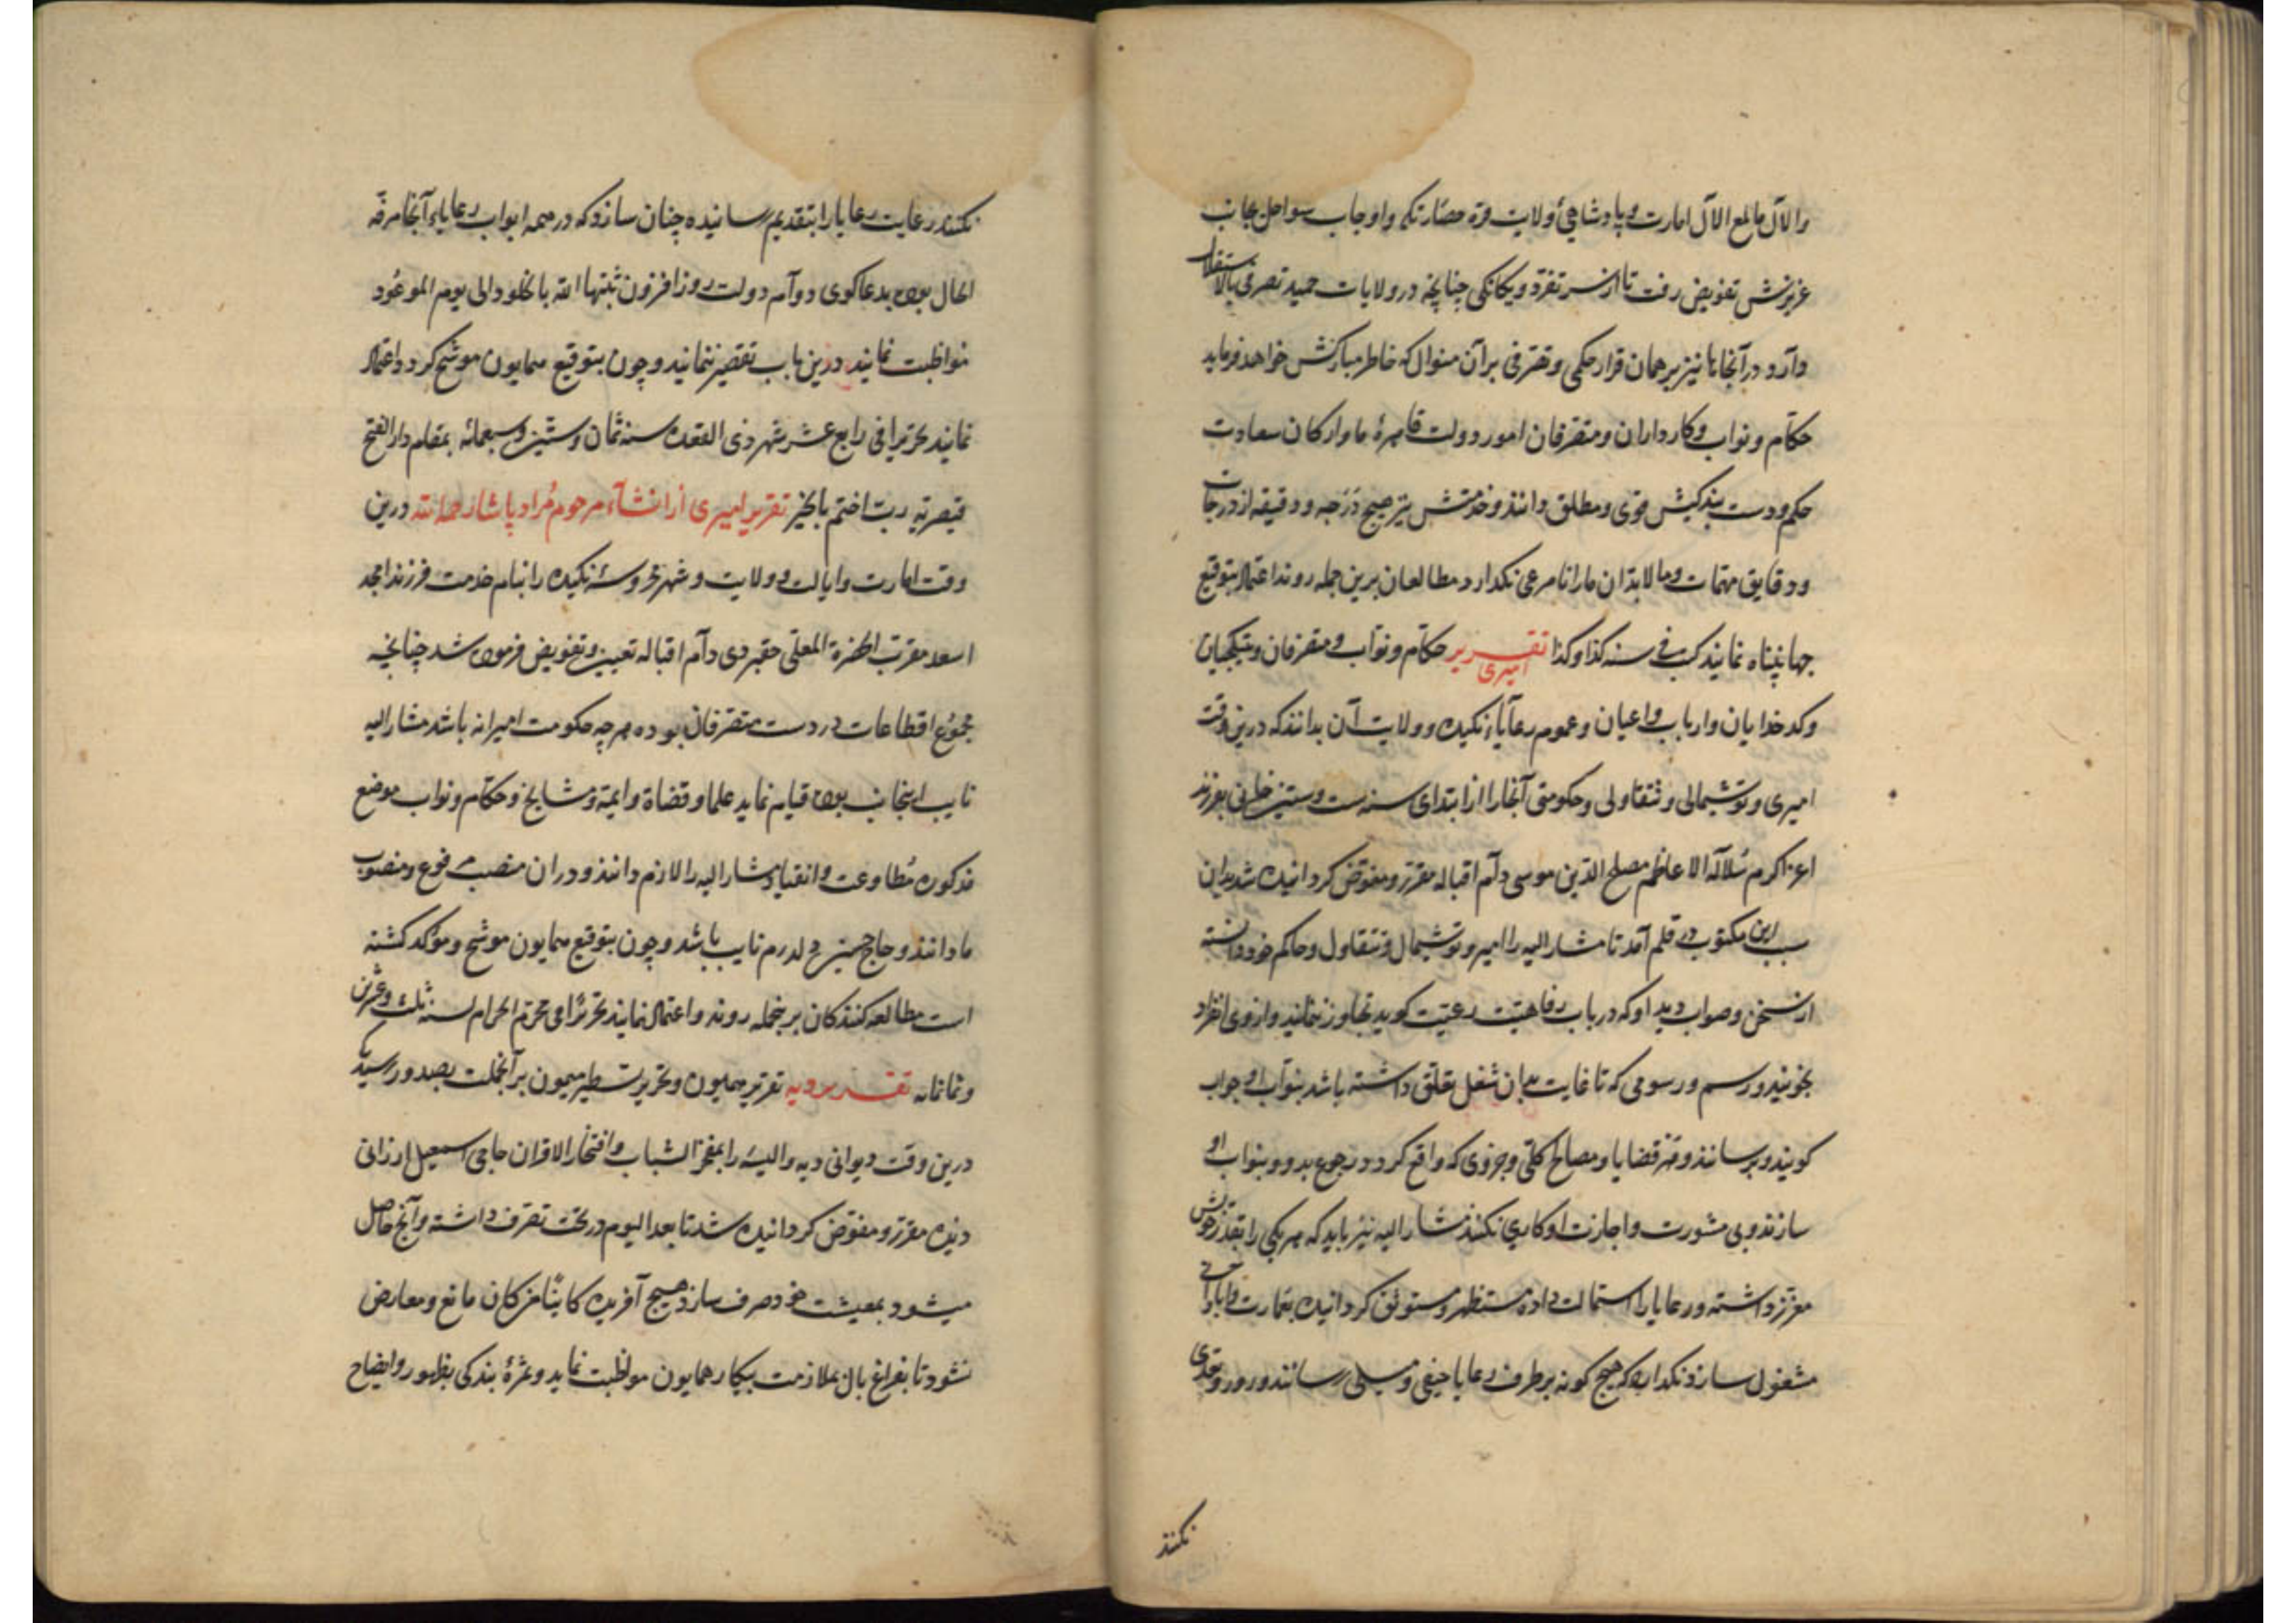 والآل مالمع الآل امارت و پادشاهئ ولایت قره حصار تکه واوجاب سواحل بجانب
عزیزش تفویض رفت تا از سر تفرد ویکانکی چنانچه در ولایات حمید تصرفی بالاستقلال
دارد در آنجاها نیز بر همان قرار حکمی وتصرفی بر آن منوال که خاطر مبارکش خواهد فرماید
حکّام ونواب وکارداران ومتصرفان امور دولت قاهرهٔ ما وارکان سعادت
حکم ودست بندکیش قوی ومطلق دانند وخدمتش نیز هیچ درجه ودقیقه از درجات
ودقایق مهمّات ومالابدّ ان مارا نامرعی نکدارد مطالعان برین جمله روند اعتماد بتوقیع
جهانپناه نمایند کتب فی سنه کذا وکذا تقریر امیری حکّام ونوّاب ومتصرفان وبتیکچیان
وکدخدایان وارباب واعیان وعموم رعایاء نکیده وولایت آن بدانند که درین وقت
امیری وتوشمالی وتتقاولی وحکومتی آنجارا از ابتدای سنه ست وستین خانی بفرزند
اعزّ اکرم سُلالة الاعاظم مصلح الدین موسی دآم اقباله مقرّر ومفوّض کردانیده شد بدان
سبب این مکتوب در قلم آمد تا مشار الیه را امیر وتوشمال وتتقاول وحاکم خود دانسته
از سخن وصواب دید او که در باب رفاهیّت رعیّت کوید تجاوز ننمایند واز وی انفراد
نجویند ورسم ورسومی که تا غایت بدان شغل تعلّق داشته باشد بنوّاب او جواب
کویند وبرسانند وهر قضایا ومصالح کلّی وجزوی که واقع کردد رجوع بدو وبنواب او
سازند وبی مشورت واجازت او کاری نکنند مشار الیه نیز باید که هر یکی را بقدر خویش
معزّز داشته ورعایارا استمالت داده مستظهر ومستوثق کردانیده بعمارت وابادانی
مشغول سازد نکدارد که هیچ کونه بر طرف رعایا حیفی ومیلی رسانند وزور وتعدّی
نکنند
نکنند رعایت رعایارا بتقدیم رسانیده چنان سازد که در همه ابواب رعایاء آنجا مرفّه
الحال بوده بدعاکوی دوآم دولت روز افزون ثبّتها الله بالخلود الی یوم الموعُود
مواظبت نمایند درین باب تقصیر ننمایند وچون بتوقیع همایون موشّح کردد اعتماد
نمایند تحریرا فی رابع عشر شهر ذی القعده سنه ثمان وستین وسبعمائه بمقام دار الفتح
قیصریّه ربّ اختم بالخیر تقریر امیری از انشآء مرحوم مُراد پاشا رحمه الله درین
وقت امارت وایالت وولایت وشهر محروسهٔ نکیده را بنام خدمت فرزند امجد
اسعد مقرّب الحضرة المعلّی حقیردی دآم اقباله تعیین وتفویض فرموده شد چنانچه
مجموُع اقطاعات در دست متصرفان بوده هر چه حکومت امیرانه باشد مشار الیه
نایب اینجانب بوده قیام نماید علما وقضاة وایمّه ومشایخ وحکّام ونواب موضع
مذکوره مُطاوعت وانقیاد مشار الیه را لازم دانند ودران منصب مرفوع ومنصوب
ما دانند وحاج حسین ولدرم نایب باشد وچون بتوقیع همایون موشّح ومؤکّد کشته
است مطالعه کنندکان برینجمله روند واعتماد نمایند تحریرًا فی محرّم الحرام لسنه ثلث وعشرین
وثمانمائه تقریر دیه تقریر همایون وتحریر تسطیر میمون بر آنجملت بصدور رسید که
درین وقت دیوانی دیه والیسه را بمفخر الشباب وافتخار الاقران حاجی اسمعیل ارزانی
دیده مقرّر ومفوّض کردانیده شد تا بعد الیوم در تحت تصرّف داشته وآنچ حاصل
میشود بمعیشت خود صرف سازد هیچ آفریده کاینًا من کان مانع ومعارض
نشود تا بفراغ بال بملازمت بیکار همایون مواظبت نماید وثمرهٔ بندکی بظهور وایضاح